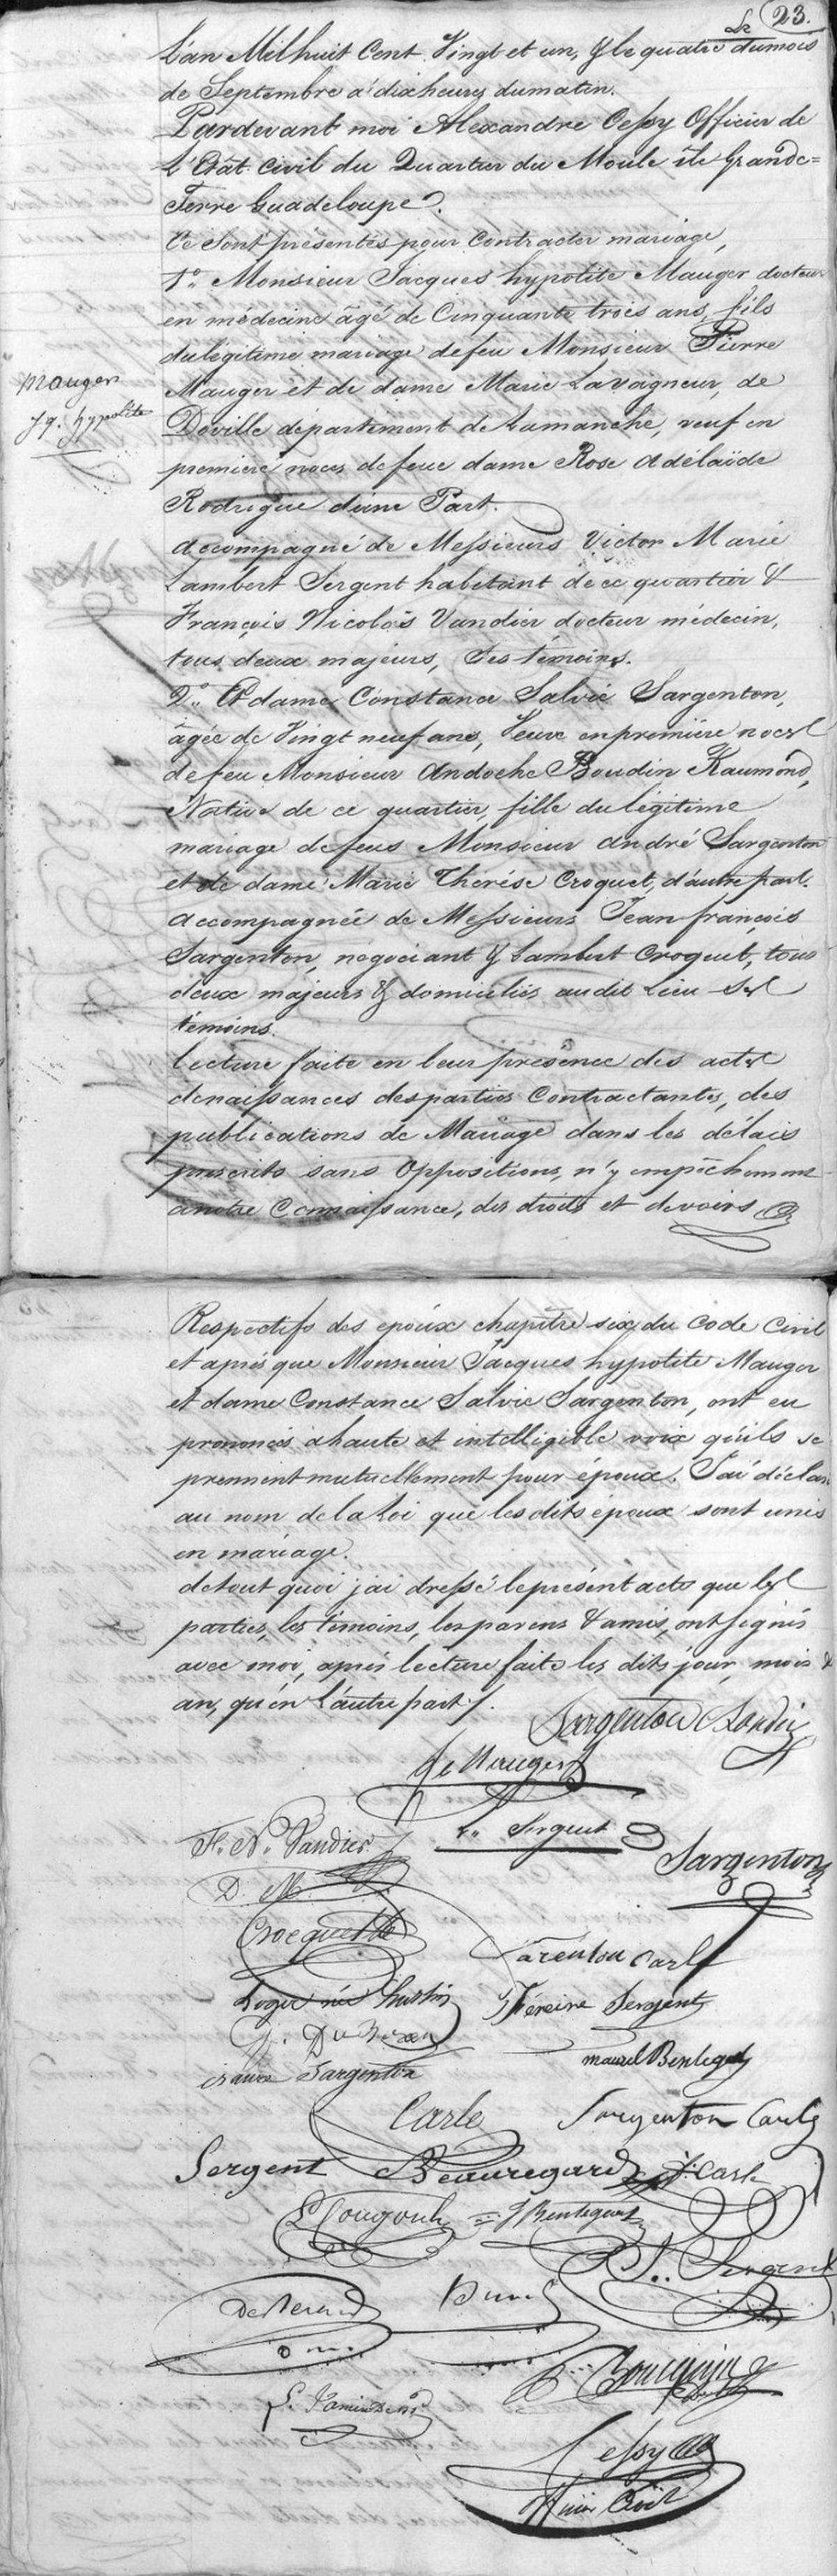 23.
L'an Milhuit Cent Vingt et un, & le quatre dumois
de Septembre à dix heures dumatin.
Pardevant moi Alexandre Cessy Officier de
L'Etat Civil du Quartier du Moule île Grande=
Terre Guadeloupe.
Ce sont présentés pour Contracter mariage,
1°. Monsieur Jacques hypolite Mauger docteur
en médecine âgé de Cinquante trois ans, fils
dulégitime mariage defeu Monsieur Pierre
Mauger et de dame Marie Lavogneur, de
Doville département de Lamanche, veuf en
première noces defeue dame Rose Adélaïde
Rodrigue d'une Part.
Mauger
Jq. hypolite
accompagné de Messieurs Victor Marie
Lambert Sergent habitant de ce quartier &
François Nicolas Vandier docteur médecin,
tous deux majeurs, Ses témoins.
2°. Et dame Constance Salvie Sargenton,
âgée de Vingt neuf ans, Veuve enpremière noces
defeu Monsieur Andoche Boudin Raumond,
Native de ce quartier, fille dulégitime
mariage defeus Monsieur André Sargenton
et de dame Marie Thérése Croquet, d'autre part.
accompagnée de Messieurs Jean françois
Sargenton, négociant & Lambert Croquet, tous
deux majeurs & domiciliés audit Lieu Ses
témoins.
Lecture faite en leur présence des actes
denaissances desparties Contractantes, des
publications de Mariage dans les délais
prescrits sans Oppositions, n'y empêchement
anotre Connaissance, des droits et devoirs
Respectifs des epoux chapitre six du Code Civil
et après que Monsieur Jacques hypolite Mauger
et dame Constance Salvie Sargenton, ont eu
prononcés àhaute et intelligible voix qu'ils se
prennent mutuellement pour époux. J'ai déclaré
au nom delaLoi que lesdits époux sont unis
en mariage.
detout quoi j'ai dressé leprésent acte que les
parties, les témoins, lesparens & amis, ont signés
avec moi, après lecture faite les dits jour, mois &
an, qu'en L'autre part.
Sargenton
Mauger
F. N. Vandier
Sergent
Sargenton
D. M.
Crocquet
Sarenton Carle
Loger née
Sergent
Sargenton
Carle
Sargenton Carle
Sergent
Beauregard
Carle
Sergent
Cessy